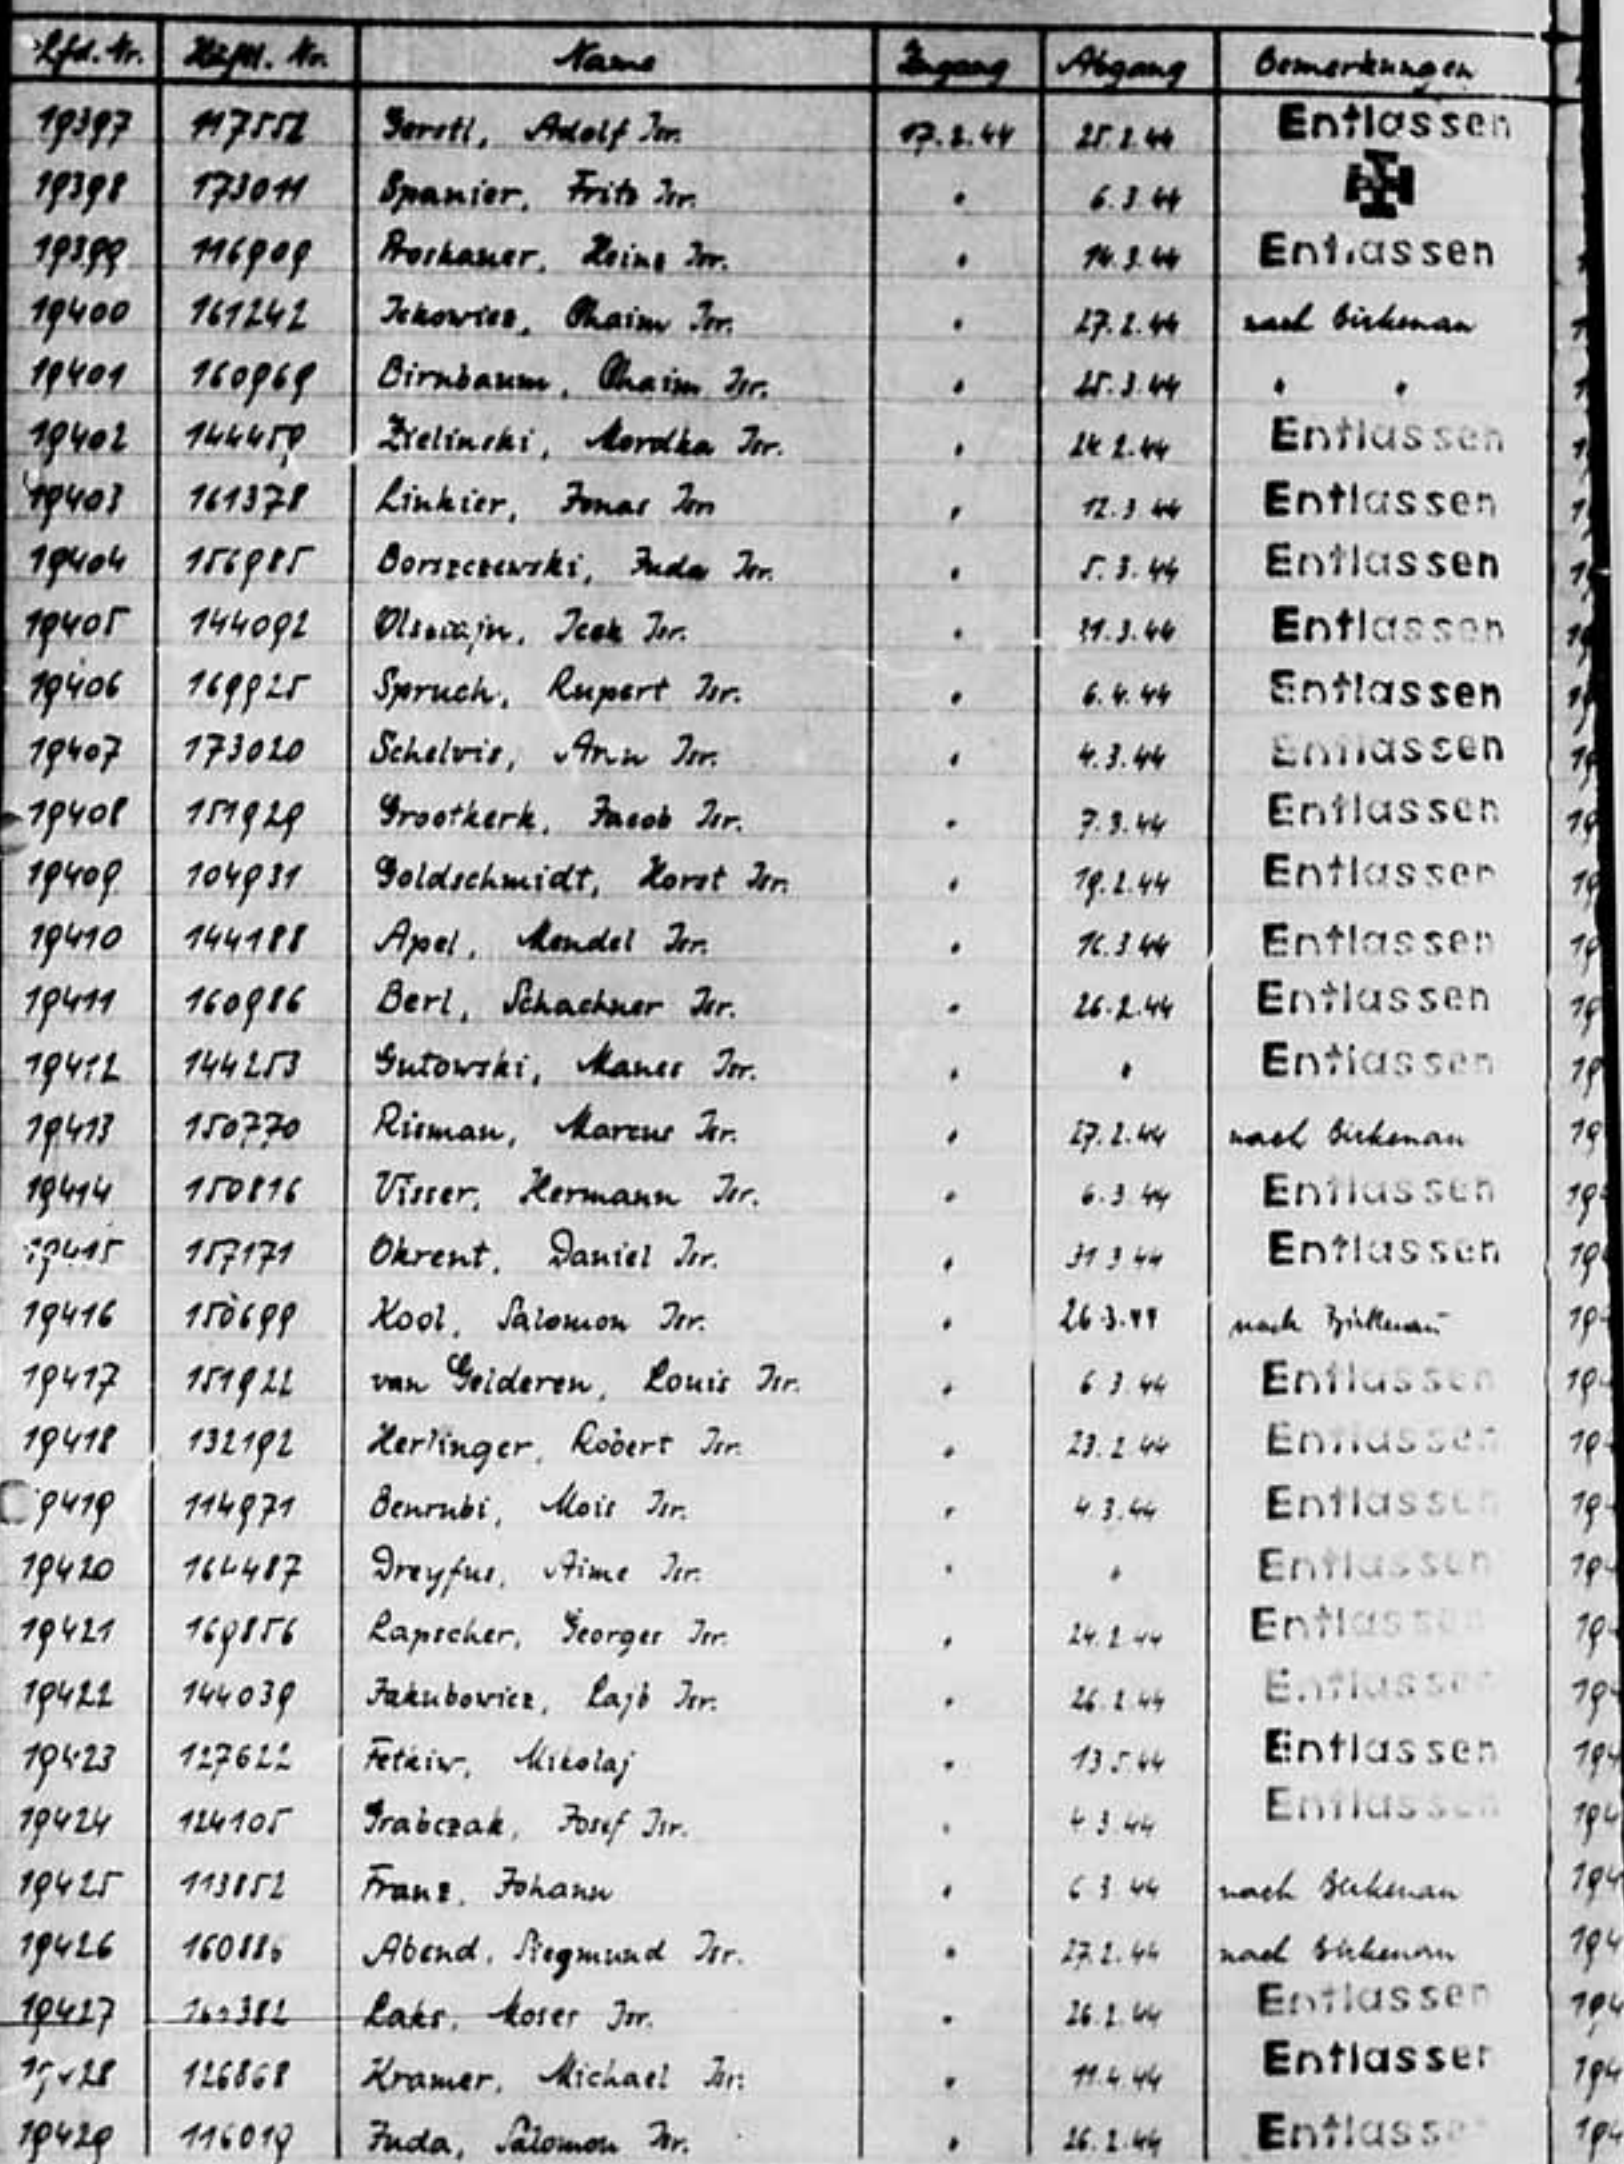 Lfd. Nr. Häftl. Nr. Name Zugang Abgang Bemerkungen
19397 117552 Gerstl, Adolf Isr. 17.2.44 25.2.44 Entlassen
19398 173011 Spanier, Fritz Isr. " 6.3.44
19399 116909 Proskauer, Heinz Isr. " 14.3.44 Entlassen
19400 161242 Ickowicz, Chaim Isr. " 27.2.44 nach Birkenau
19401 160969 Birnbaum, Chaim Isr. " 25.3.44 " "
19402 144459 Zielinski, Mordka Isr. " 24.2.44 Entlassen
19403 161378 Linkier, Jonas Isr. " 12.3.44 Entlassen
19404 156985 Borszczewski, Juda Isr. " 5.3.44 Entlassen
19405 144092 Icek Isr. " Entlassen
19406 169925 Spruch, Rupert Isr. " 6.4.44 Entlassen
19407 173020 Schelvis, Isr. " 4.3.44 Entlassen
19408 151929 Grootkerk, Jacob Isr. " 7.3.44 Entlassen
19409 104931 Goldschmidt, Horst Isr. " 19.2.44 Entlassen
19410 144188 Apel, Mendel Isr. " 16.3.44 Entlassen
19411 160986 Berl, Schachner Isr. " 26.2.44 Entlassen
19412 144253 Gutowski, Manes Isr. " " Entlassen
19413 150770 Risman, Marcus Isr. " 27.2.44 nach Birkenau
19414 150816 Visser, Hermann Isr. " 6.3.44 Entlassen
19415 157171 Okrent, Daniel Isr. " 31.3.44 Entlassen
19416 150699 Kool, Salomon Isr. " 26.3.44 nach Birkenau
19417 151922 van Gelderen, Louis Isr. " 6.3.44 Entlassen
19418 132192 Herlinger, Robert Isr. " 23.2.44 Entlassen
19419 114971 Benrubi, Mois Isr. " 4.3.44 Entlassen
19420 164487 Dreyfus, Aime Isr. " " Entlassen
19421 169856 Lapscher, Georges Isr. " 24.2.44 Entlassen
19422 144039 Jakubowicz, Lajb Isr. " 26.2.44 Entlassen
19423 127622 Fetkiw, Mikolaj " 13.5.44 Entlassen
19424 124105 Grabczak, Josef Isr. " 4.3.44 Entlassen
19425 113852 Franz, Johann " 6.3.44 nach Birkenau
19426 Abend, Siegmund Isr. " 27.2.44 nach Birkenau
19427 Laks, Moses Isr. " 26.2.44 Entlassen
19428 126868 Kramer, Michael Isr. " 11.4.44 Entlassen
19429 116019 Juda, Salomon Isr. " 26.2.44 Entlassen